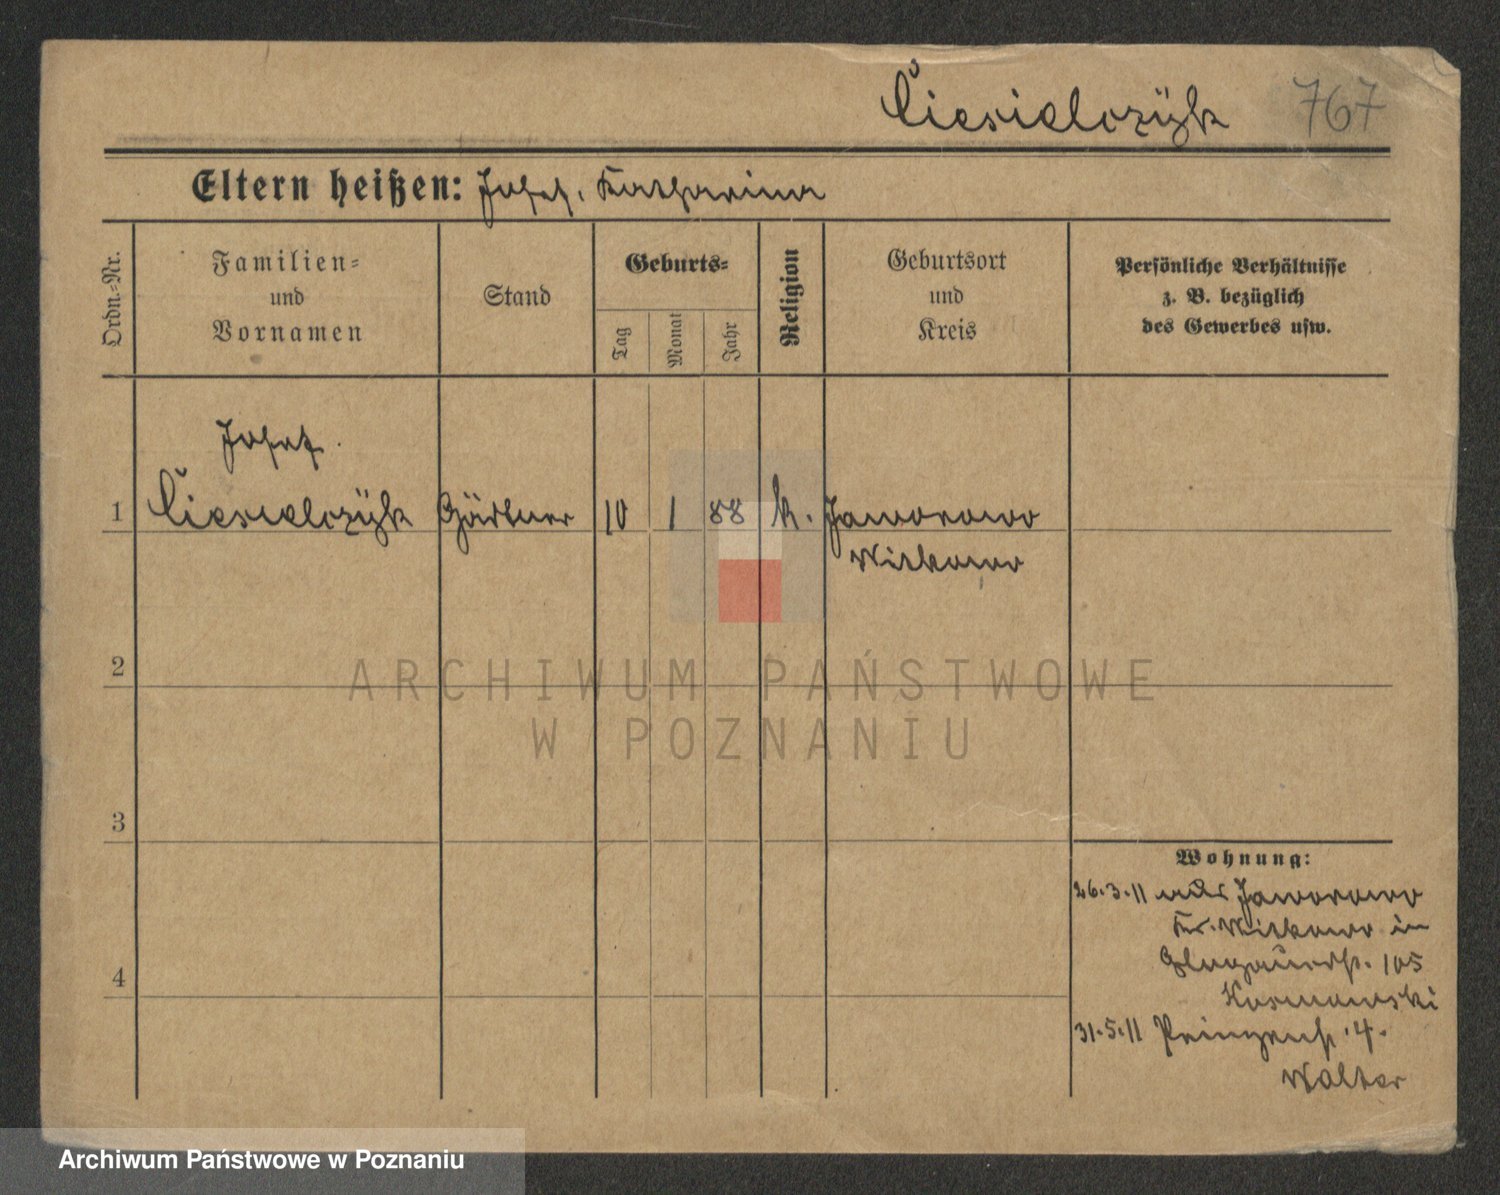 Ciesielczÿk 767
Eltern heißen: Josef, Katharina
Ordn.-Nr.
Familien-
und
Vornamen
Stand
Geburts-
Tag
Monat
Jahr
Religion
Geburtsort
und
Kreis
Persönliche Verhältnisse
z. B. bezüglich
des Gewerbes usw.
Josef
1 Ciesielczÿk Gärtner 10 1 88 k. Jaworowo
Witkowo
2
ARCHIWUM PAŃSTWOWE
W POZNANIU
3
Wohnung:
26.3.11 aus Jaworowo
Kr. Witkowo in
Glogauerstr. 105
4
31.5.11 Prinzenstr. 4.
Walter
Archiwum Państwowe w Poznaniu